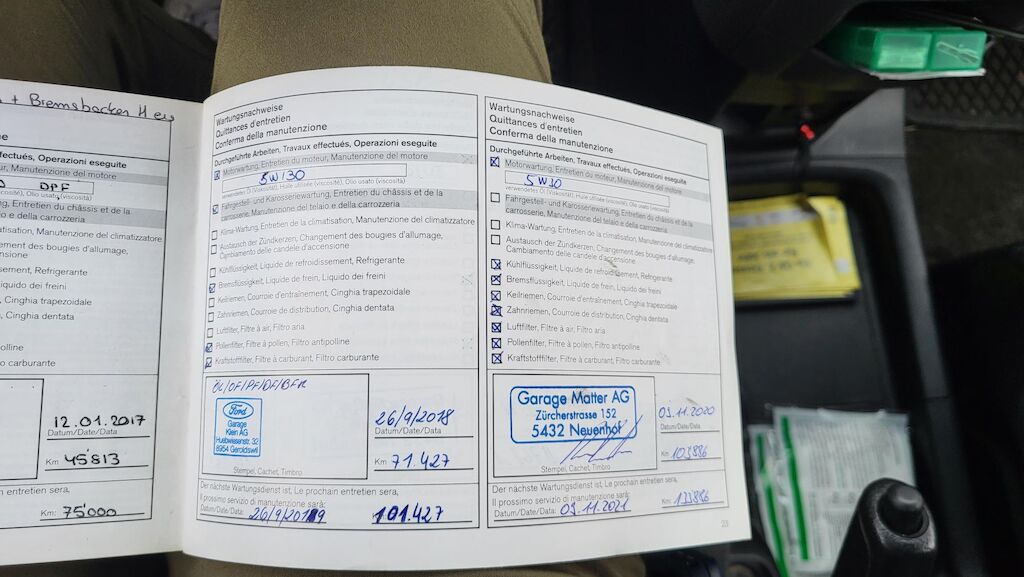 + Bremsbacken H
effectués, Operazioni eseguite
ur, Manutenzione del motore
DPF
cosité), Olio usato (viscosità)
, Entretien du châssis et de la
o e della carrozzeria
limatisation, Manutenzione del climatizzatore
ement des bougies d'allumage,
d'accensione
issement, Refrigerante
iquido dei freini
ent, Cinghia trapezoidale
istribution, Cinghia dentata
aria
polline
carburante
12.01.2017
Datum/Date/Data
Km 45'813
n entretien sera,
Km: 75'000
Wartungsnachweise
Quittances d'entretien
Conferma della manutenzione
Durchgeführte Arbeiten, Travaux effectués, Operazioni eseguite
Motorwartung, Entretien du moteur, Manutenzione del motore
5W130
verwendetes Öl (Viskosität), Huile utilisée (viscosité), Olio usato (viscosità)
Fahrgestell- und Karosseriewartung, Entretien du châssis et de la
carrosserie, Manutenzione del telaio e della carrozzeria
Klima-Wartung, Entretien de la climatisation, Manutenzione del climatizzatore
Austausch der Zündkerzen, Changement des bougies d'allumage,
Cambiamento delle candele d'accensione
Kühlflüssigkeit, Liquide de refroidissement, Refrigerante
Bremsflüssigkeit, Liquide de frein, Liquido dei freini
Keilriemen, Courroie d'entraînement, Cinghia trapezoidale
Zahnriemen, Courroie de distribution, Cinghia dentata
Luftfilter, Filtre à air, Filtro aria
Pollenfilter, Filtre à pollen, Filtro antipolline
Kraftstofffilter, Filtre à carburant, Filtro carburante
ÖL/OF/PF/DF/BFR
Ford
Garage
Klein AG
Huebwiesenstr. 32
8954 Geroldswil
Stempel, Cachet, Timbro
26/9/2018
Datum/Date/Data
Km 71.427
Der nächste Wartungsdienst ist, Le prochain entretien sera,
Il prossimo servizio di manutenzione sarà:
Datum/Date/Data: 26/9/2019 101.427
Wartungsnachweise
Quittances d'entretien
Conferma della manutenzione
Durchgeführte Arbeiten, Travaux effectués, Operazioni eseguite
Motorwartung, Entretien du moteur, Manutenzione del motore
5W30
verwendetes Öl (Viskosität), Huile utilisée (viscosité), Olio usato (viscosità)
Fahrgestell- und Karosseriewartung, Entretien du châssis et de la
carrosserie, Manutenzione del telaio e della carrozzeria
Klima-Wartung, Entretien de la climatisation, Manutenzione del climatizzatore
Austausch der Zündkerzen, Changement des bougies d'allumage,
Cambiamento delle candele d'accensione
Kühlflüssigkeit, Liquide de refroidissement, Refrigerante
Bremsflüssigkeit, Liquide de frein, Liquido dei freini
Keilriemen, Courroie d'entraînement, Cinghia trapezoidale
Zahnriemen, Courroie de distribution, Cinghia dentata
Luftfilter, Filtre à air, Filtro aria
Pollenfilter, Filtre à pollen, Filtro antipolline
Kraftstofffilter, Filtre à carburant, Filtro carburante
Garage Matter AG
Zürcherstrasse 152
5432 Neuenhof
Stempel, Cachet, Timbro
03.11.2020
Datum/Date/Data
Km 103886
Der nächste Wartungsdienst ist, Le prochain entretien sera,
Il prossimo servizio di manutenzione sarà:
Datum/Date/Data: 03.11.2021 Km: 133886
23